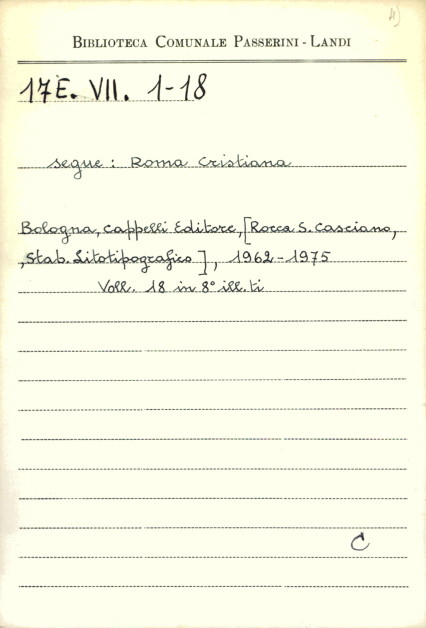 4)
BIBLIOTECA COMUNALE PASSERINI - LANDI
17E. VII. 1-18
segue : Roma Cristiana
Bologna, Cappelli Editore, [Rocca S. Casciano,
, Stab. Litotipografico], 1962-1975
Voll. 18 in 8° ill.ti
C